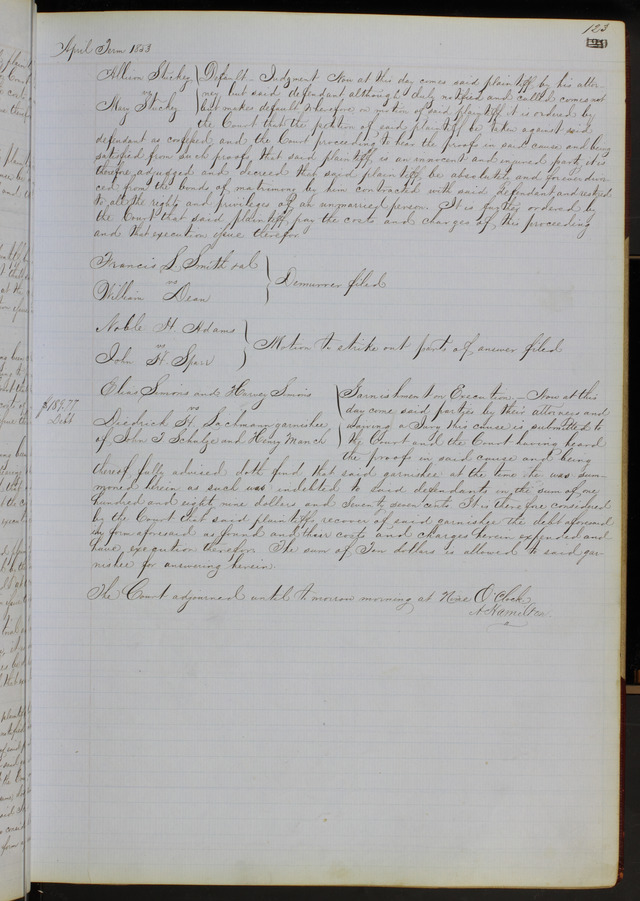 123
April Term 1853
Default. Judgment Now at this day comes said plaintiff by his attor-
vs
Mary Stuckey
ney but said defendant although duly notified and called comes not
but makes default Therefore on motion of said plaintiff it is ordered by
the Court that the petition of said plaintiff be taken against said
defendant as confessed and the Court proceeding to hear the proofs in said cause and being
satisfied from such proofs that said plaintiff is an innocent and injured party, it is
therefore adjudged and decreed that said plaintiff be absolutely and forever divor
ced from the bonds of matrimony by him contracted with said defendant and restored
to all the rights and privileges of an unmarried person. It is further ordered by
the Court that said plaintiff pay the costs and charges of this proceeding
and that execution issue therefor
Francis L Smith et al
vs
William Dean
Demurrer filed
Noble H. Adams
vs
John H. Sparr
Motion to strike out parts of answer filed
Elias Simons and Harvey Simons
vs
Diedrich H. Lochmann garnishee
of John G Schulze and Henry
$189.77
Debt
Garnishment on Execution – Now at this
day come said parties by their attorneys and
waiving a Jury this cause is submitted to
the Court and the Court having heard
the proofs in said cause and being
thereof fully advised doth find that said garnishee at the time he was sum-
moned herein as such was indebted to said defendants in the sum of one
hundred and eighty nine dollars and Seventy seven cents. It is therefore considered
by the Court that said plaintiffs recover of said garnishee the debt aforesaid
in form aforesaid as found and their costs and charges herein expended and
have execution therefor. The sum of Ten dollars is allowed to said gar-
nishee for answering herein
The Court adjourned until tomorrow morning at Nine O'Clock
A Hamilton